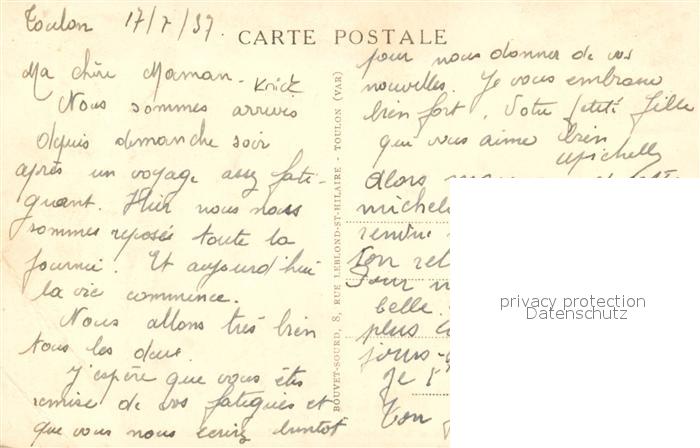 Toulon 17/7/37.
CARTE POSTALE
Ma chère Maman -
Nous sommes arrivés
depuis dimanche soir
après un voyage assez fati-
guant. Hier nous nous
sommes reposés toute la
journée. Et aujourd'hui
la vie commence.
Nous allons très bien
tous les deux.
J'espère que vous êtes
remise de vos fatigues et
que vous nous écrirez bientôt
BOUVET-SOURD, 8, RUE LEBLOND-ST-HILAIRE - TOULON (VAR)
pour nous donner de vos
nouvelles. Je vous embrasse
bien fort. Votre petite fille
qui vous aime bien
Michelle
Alors
michel
rendre
ton ret
Pour
belle.
plus
jours-
Je
Ton
privacy protection
Datenschutz